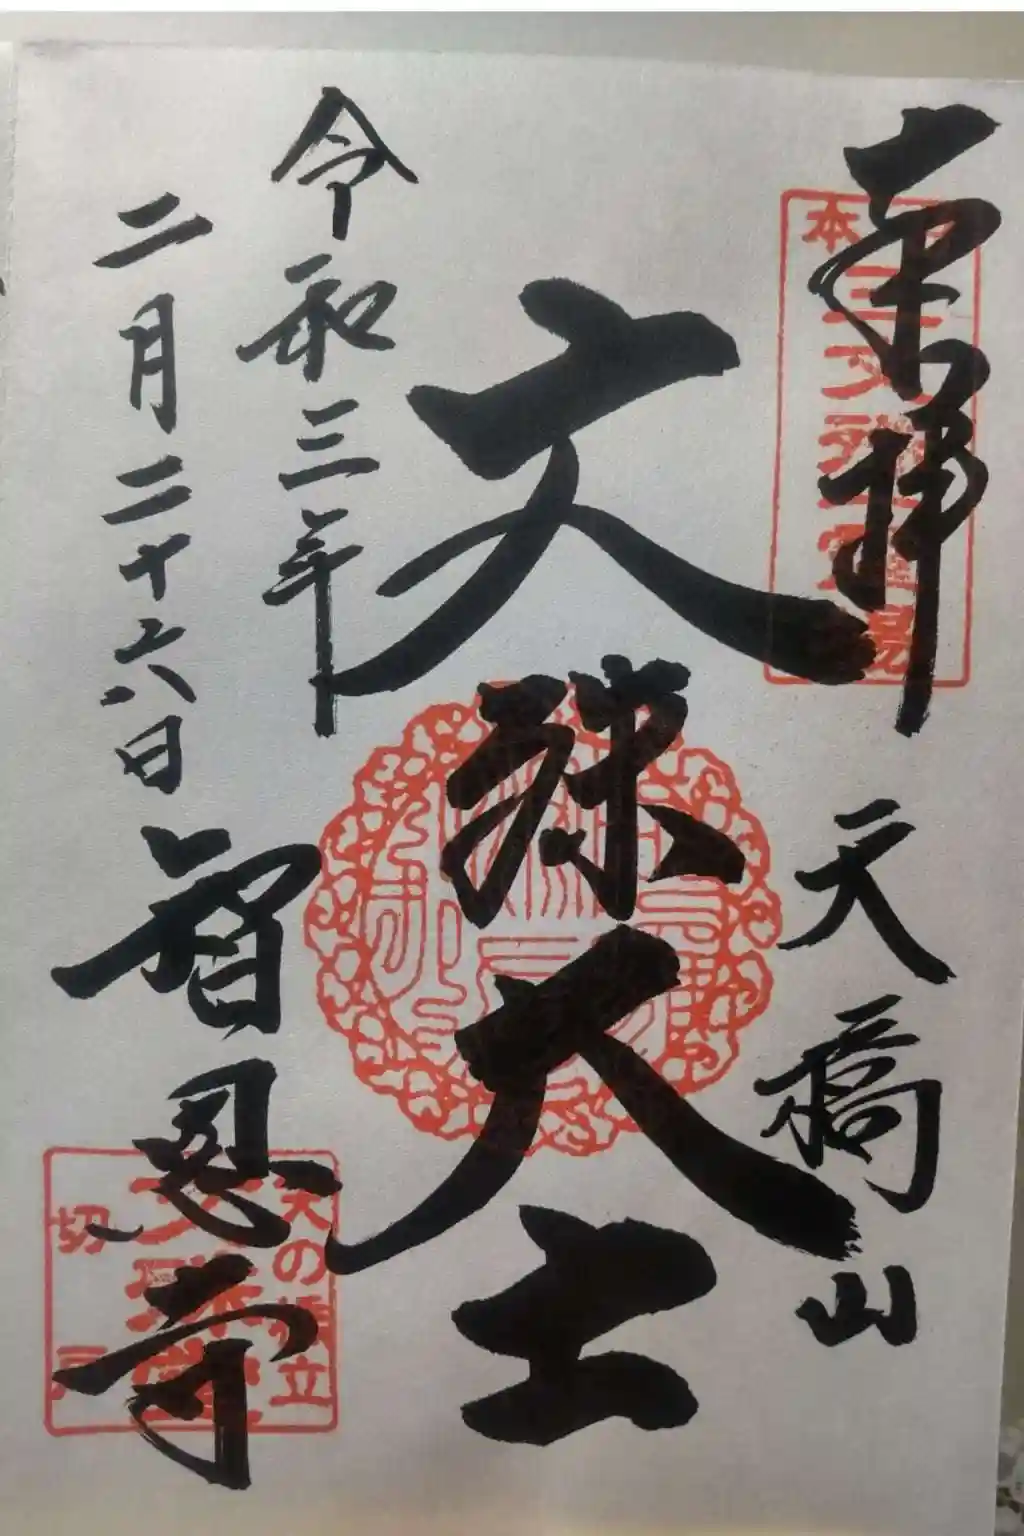 奉拝
天橋山
文殊大士
令和三年
二月二十六日
智恩寺
本
三文殊
天の橋立
文殊堂
切戸